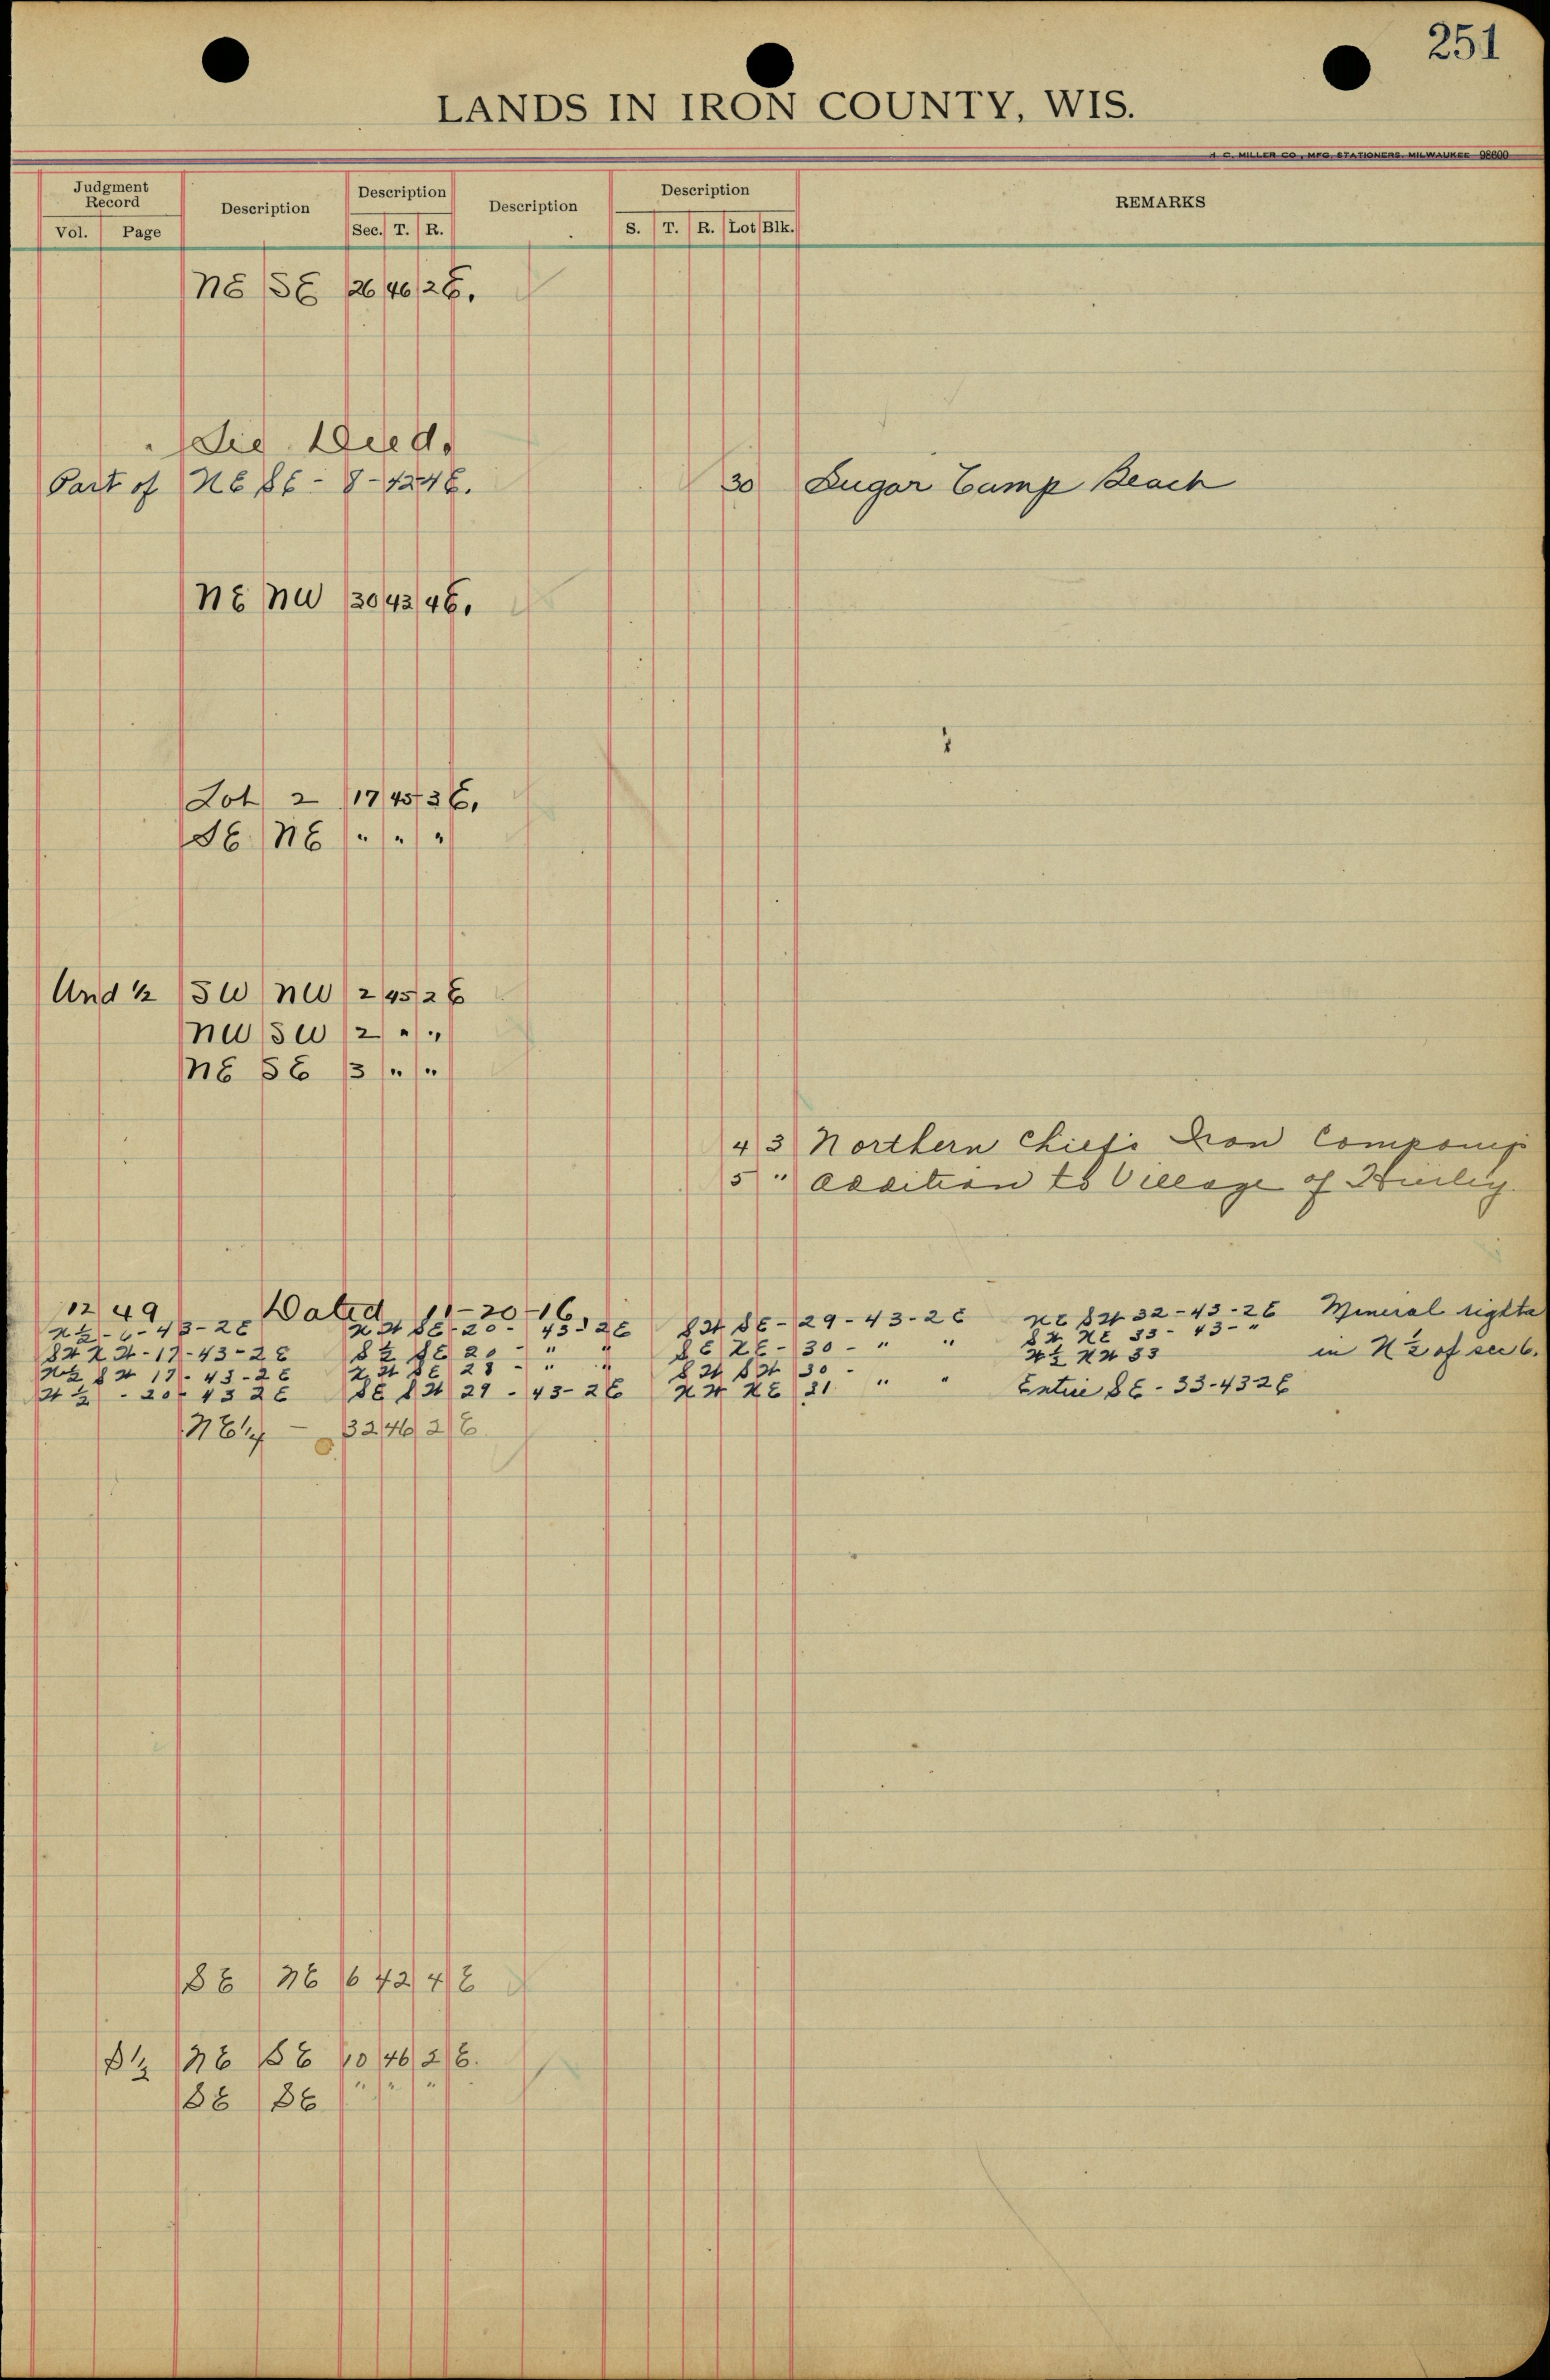 251
LANDS IN IRON COUNTY, WIS.
H. C. MILLER CO., MFG. STATIONERS. MILWAUKEE 98600
Judgment Record Description Description Description Description REMARKS
Vol. Page Sec. T. R. S. T. R. Lot Blk.
NE SE 26 46 2E.
See Deed.
Part of NE SE - 8 - 42 4E. 30 Sugar Camp Beach
NE NW 30 43 4E.
Lot 2 17 45 3E.
SE NE " " "
Und ½ SW NW 2 45 2E
NW SW 2 " "
NE SE 3 " "
4 3 Northern Chief's Iron Company
5 " Addition to Village of Hurley.
12 49 Dated 11-20-16
N½ - 6 - 43-2E NW SE - 20 - 43 - 2E SW SE - 29 - 43 - 2E NE SW 32 - 43 - 2E Mineral rights
SW NW - 17 - 43 - 2E S½ SE 20 - " " SE NE - 30 - " " SW NE 33 - 43 - " in N½ of sec 6.
N½ SW 17 - 43 - 2E NW SE 28 - " " SW SW 30 - W½ NW 33
W½ - 20 - 43 2E SE SW 29 - 43 - 2E NW NE 31 " " Entire SE - 33-43 2E
NE¼ - 32 46 2E
SE NE 6 42 4E
S½ NE SE 10 46 2E.
SE SE " " "